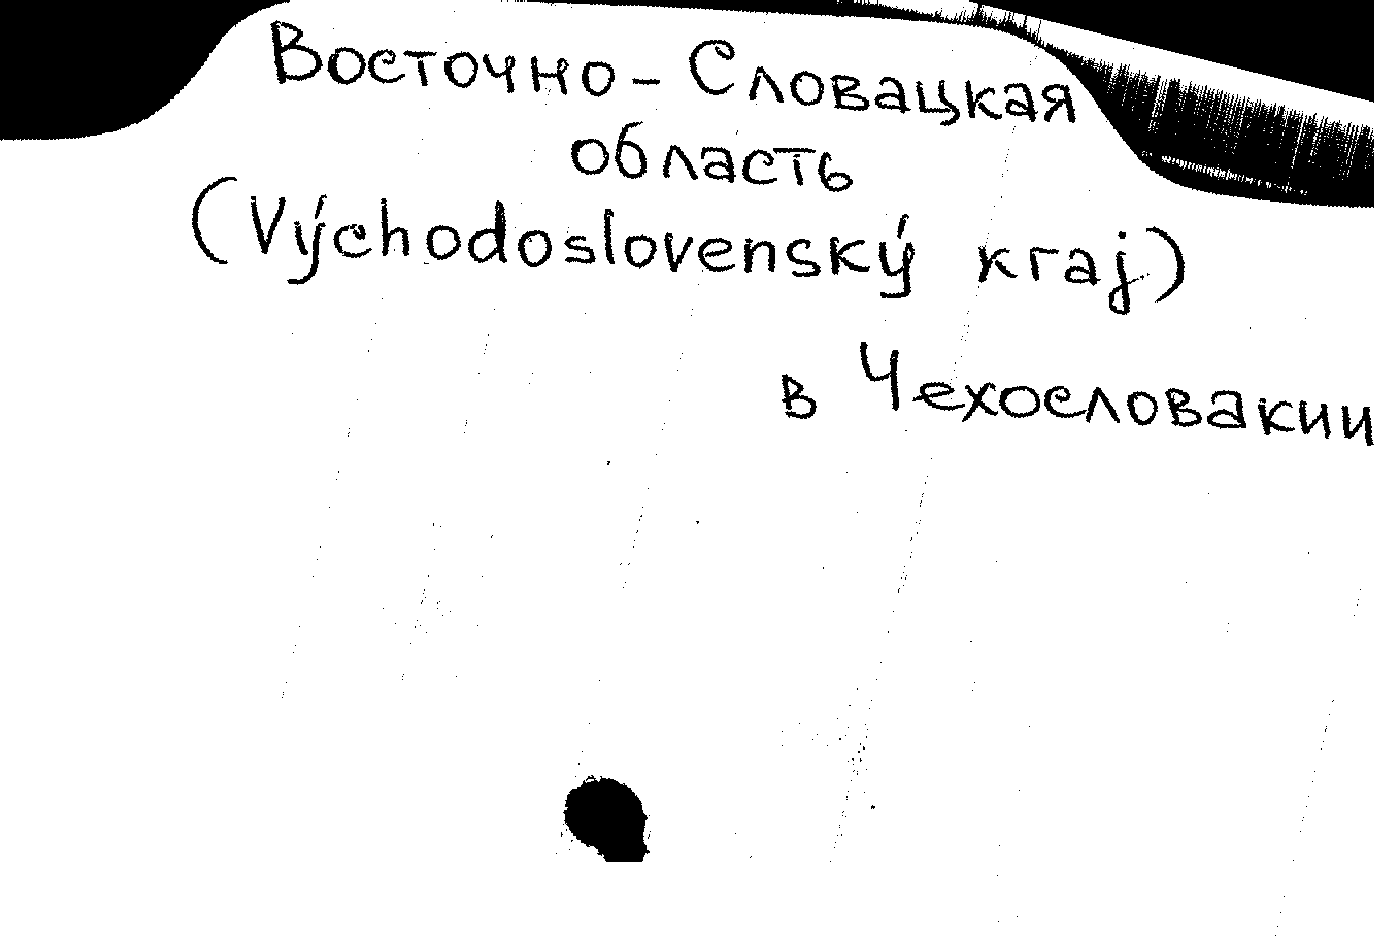 Восточно-Словацкая
область
(Východoslovenský kraj)
в Чехословакии